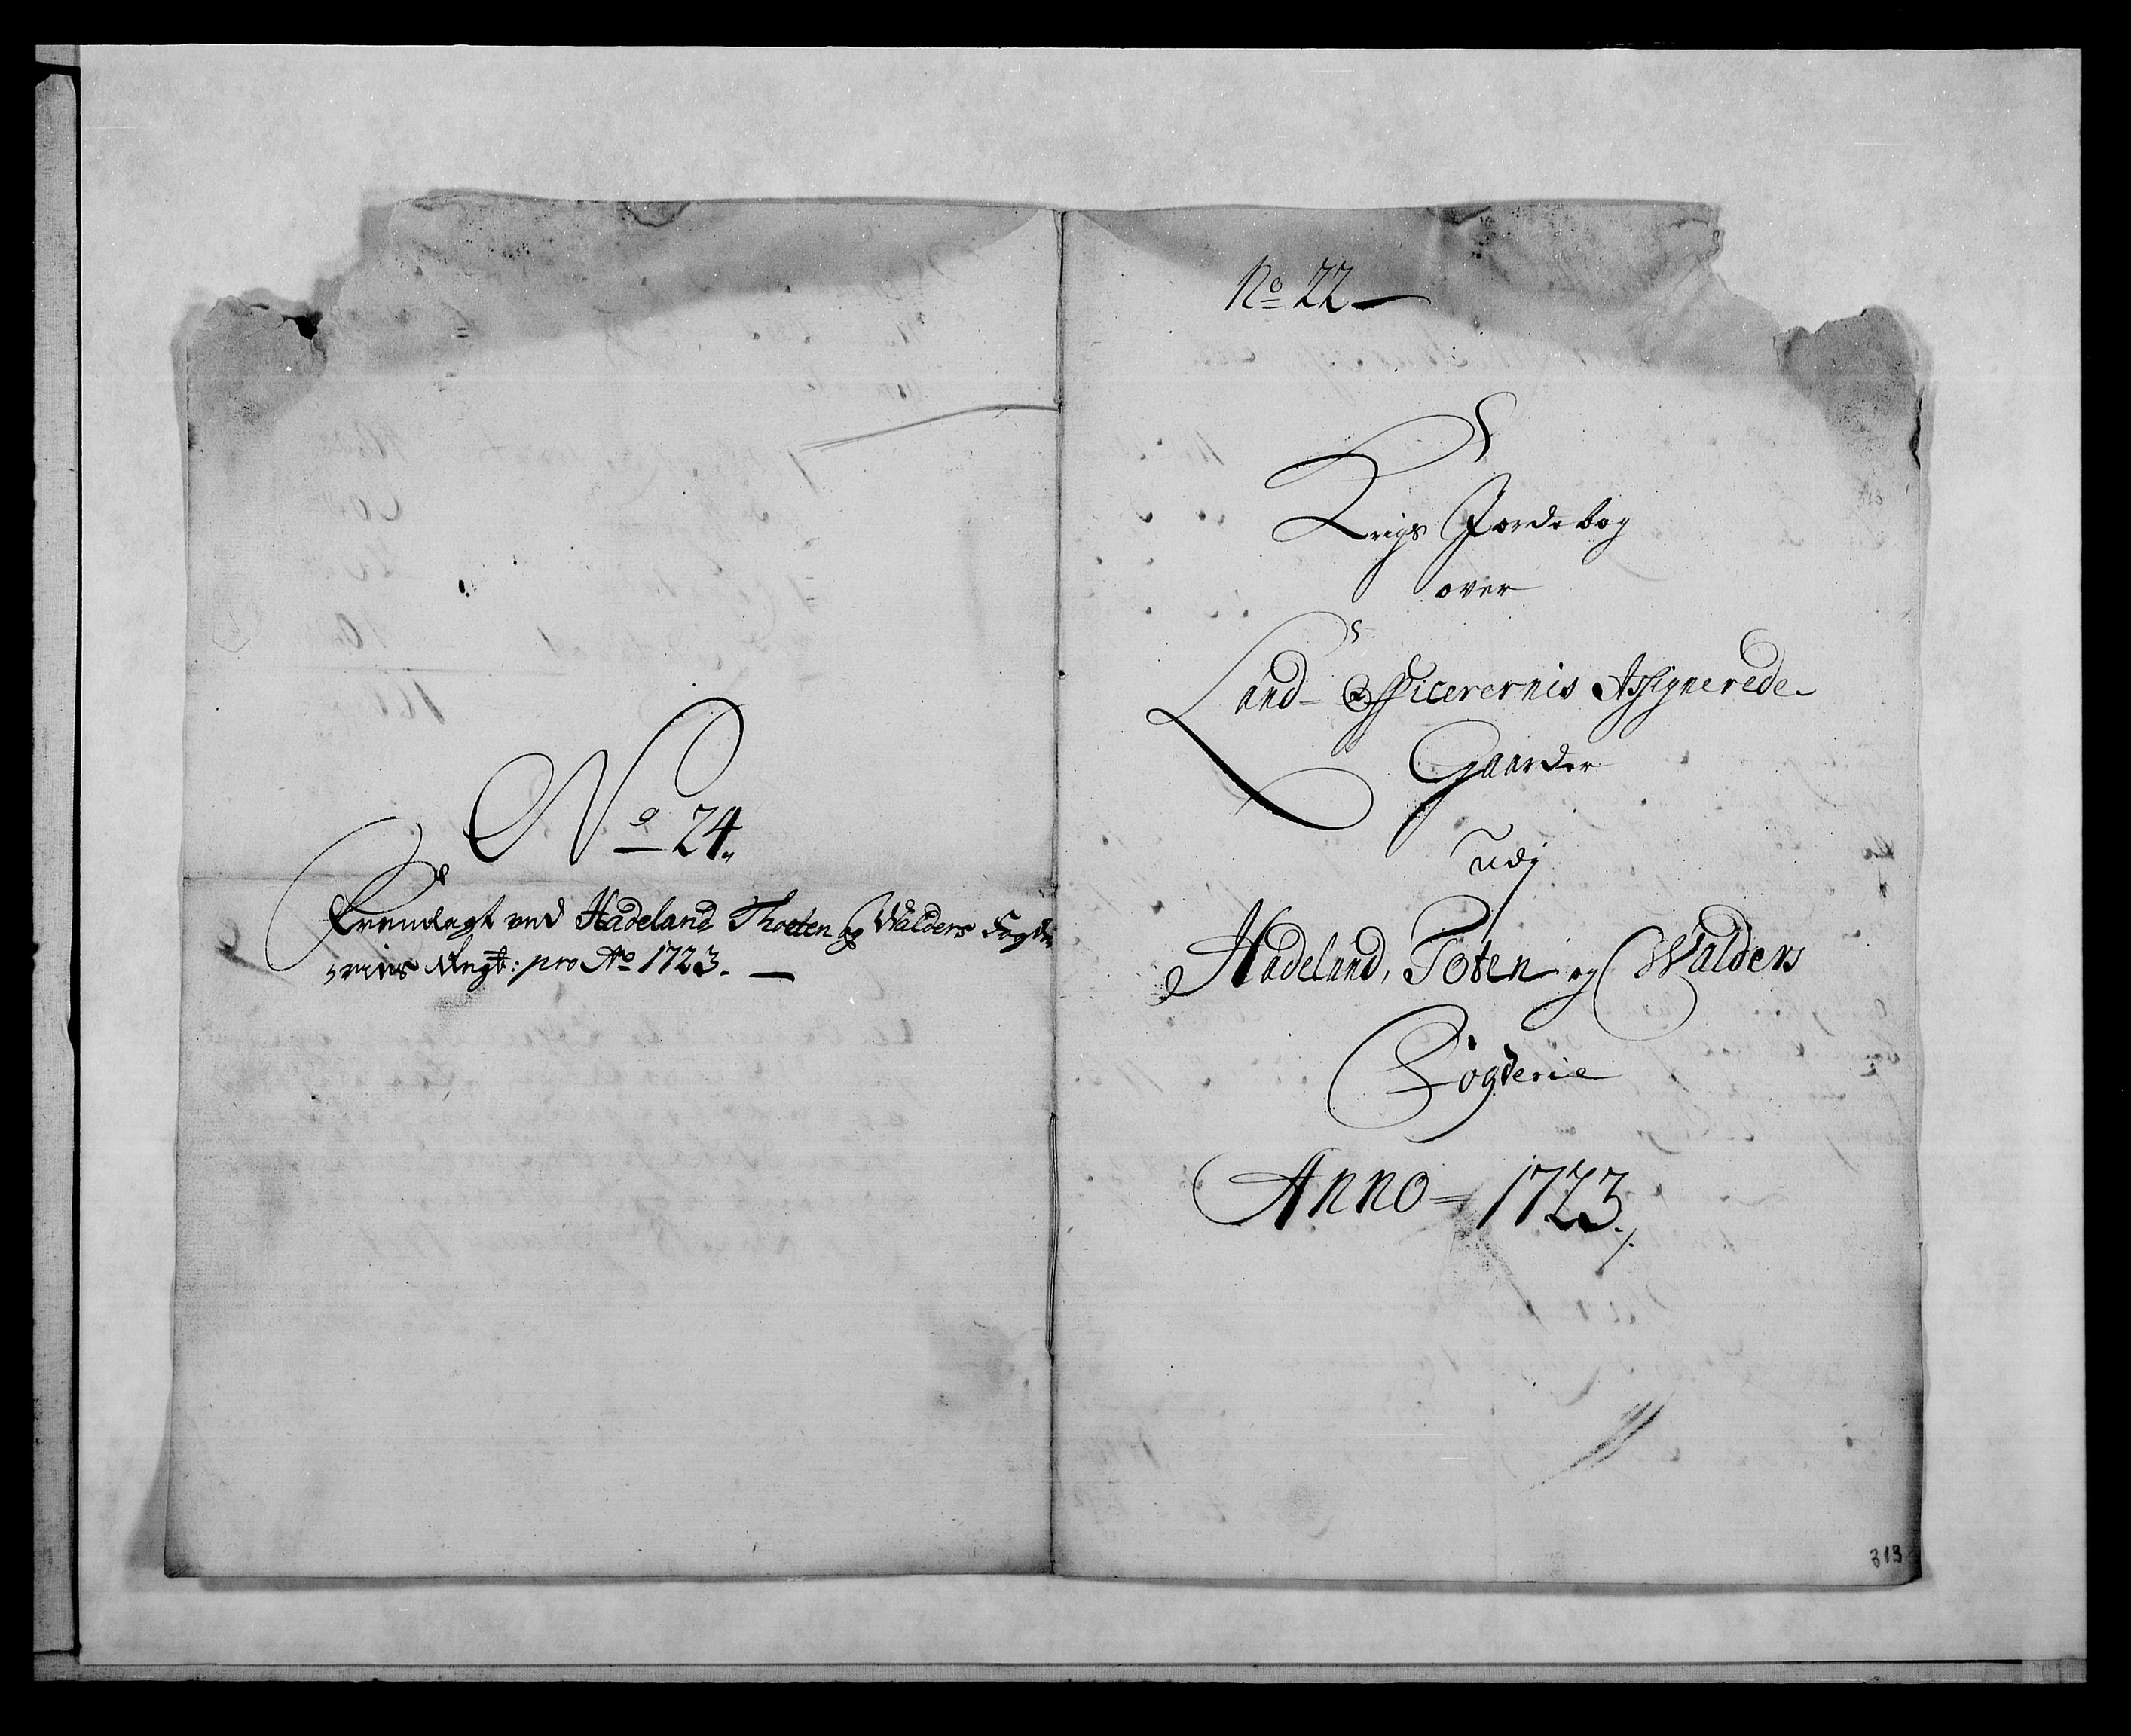 No 24.
Fremlagt ved Hadeland Thoten og Walders Fogde
eries Regt: pro Ao 1723.
No 22
Krigs Jordebog
over
Land-Officerernis Assignerede
Gaarder
udj
Hadeland, Toten og Walders
Fogderie
Anno 1723
313